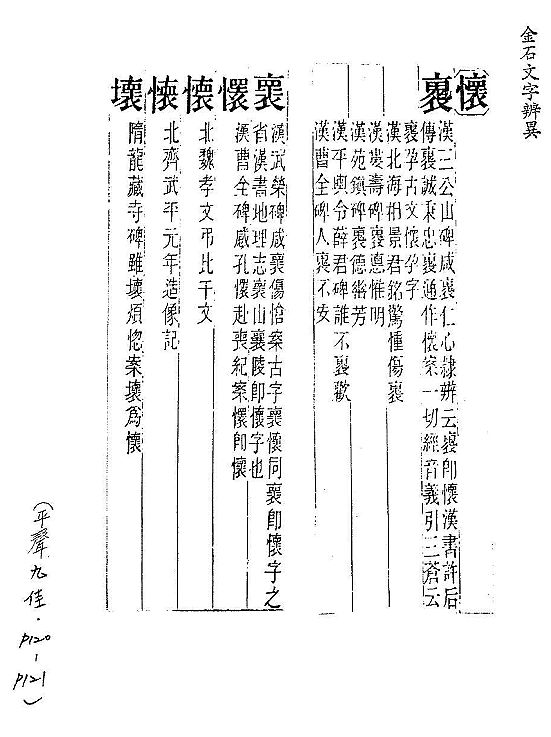 金石文字辨異
懷
褱
漢三公山碑咸褱仁心隸辨云褱即懷漢書許后
傳褱誠秉忠褱通作懷案一切經音義引三蒼云
褱孕古文懷孕字
漢北海相景君銘驚慟傷褱
漢婁壽碑褱悳惟明
漢苑鎮碑褱德幽芳
漢平輿令薛君碑誰不褱歎
漢曹全碑人褱不安
襄
漢武榮碑咸襄傷愴案古字襄懷同襄即懷字之
省漢書地理志襄山襄陵即懷字也
漢曹全碑感孔懷赴喪紀案懷即懷
北魏孝文弔比干文
北齊武平元年造像記
壞
隋龍藏寺碑雖壞煩惚案壞爲懷
(平聲九佳.P120-P121)